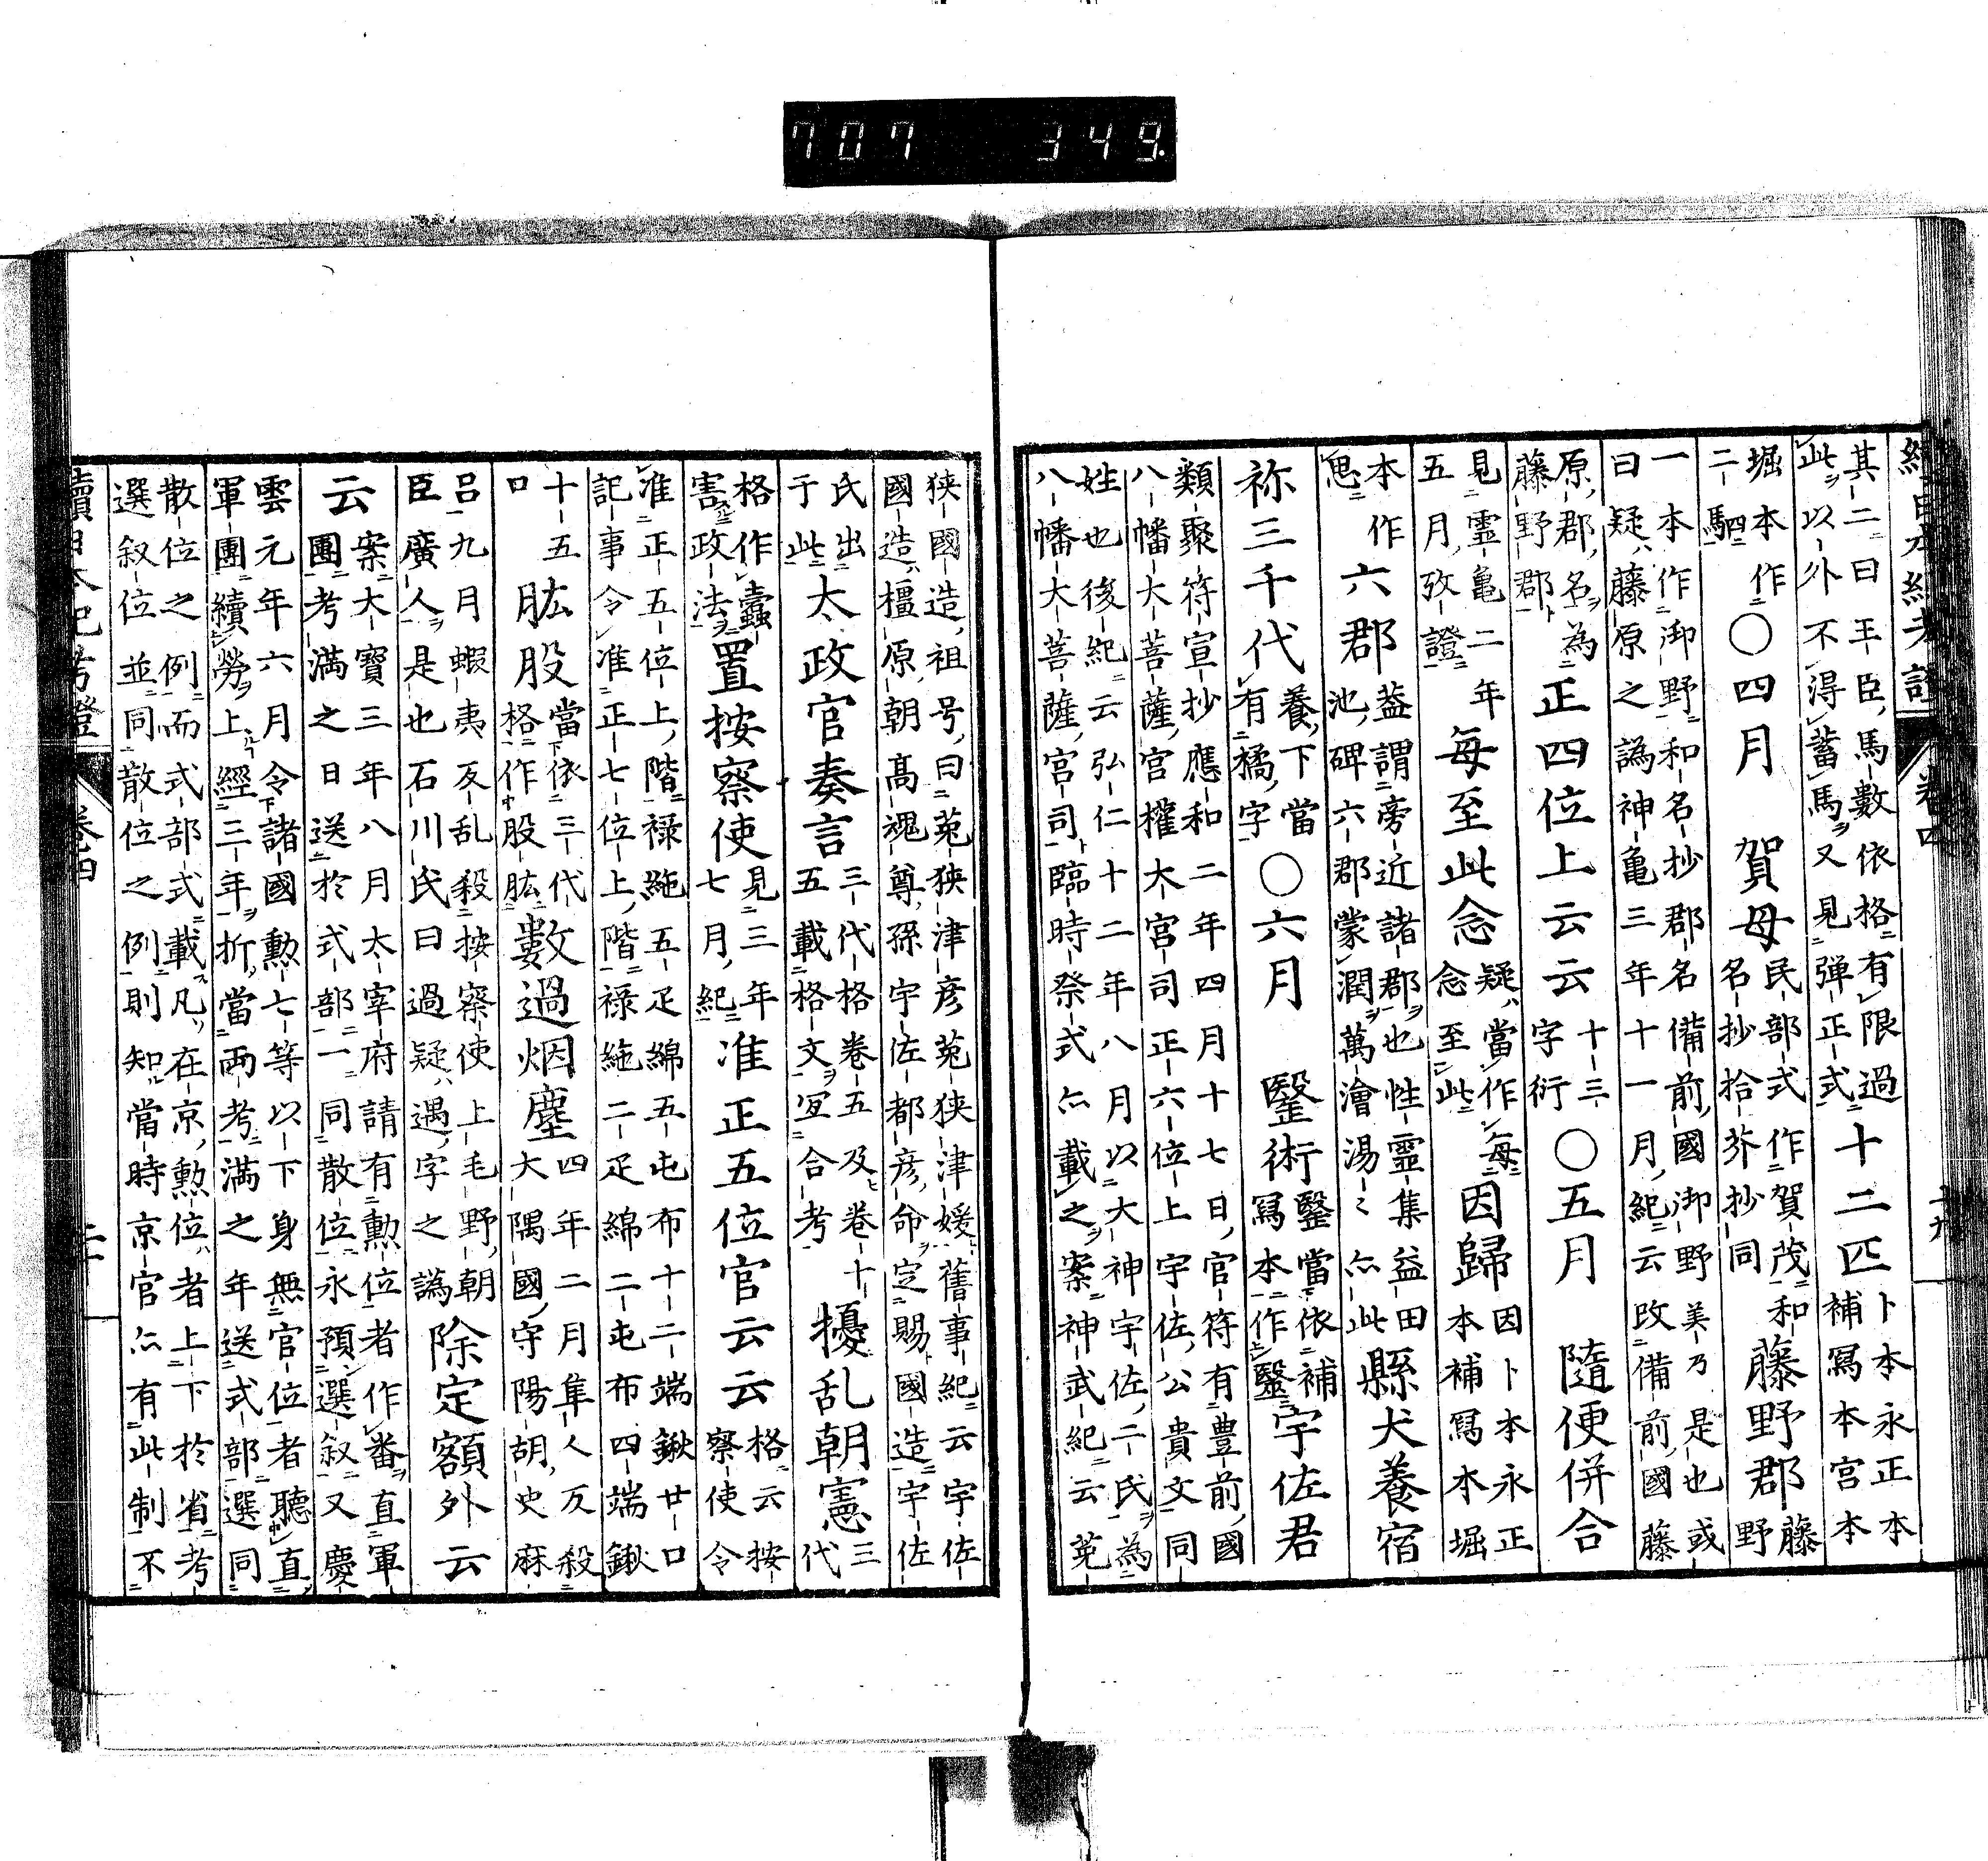 707 349
續日本紀考證 卷四 十九
其二曰王臣馬數依格有限過
此以外不得蓄馬又見彈正式
十二匹
卜本永正本
補寫本宮本
堀本作
二駟
〇四月 賀母
民部式作賀茂和
名抄拾芥抄同
藤野郡
藤
野
一本作御野和名抄郡名備前國御野美乃是也或
曰疑藤原之譌神亀三年十一月紀云改備前國藤
原郡名為
藤野郡
正四位上云云
十三
字衍
〇五月 隨便併合
見霊亀二年
五月攷證
每至此念
疑當作每
念至此
因歸
因卜本永正
本補寫本堀
本作
思
六郡
蓋謂旁近諸郡也性霊集益田
池碑六郡蒙潤萬澮湯〻亦此
縣犬養宿
祢三千代
養下當
有橘字
〇六月 毉術
毉當依補
寫本作毉
宇佐君
類聚符宣抄應和二年四月十七日官符有豊前國
八幡大菩薩宮權大宮司正六位上宇佐公貴文同
姓也後紀云弘仁十二年八月以大神宇佐二氏為
八幡大菩薩宮司臨時祭式亦載之案神武紀云菟
狹國造祖号曰菟狹津彦菟狹津媛舊事紀云宇佐
國造橿原朝高魂尊孫宇佐都彦命定賜國造宇佐
氏出
于此
太政官奏言
三代格卷五及卷十
五載格文宜合考
擾乱朝憲
三
代
格作蠹
害政法
置按察使
見三年
七月紀
准正五位官云云
格云按
察使令
准正五位上階祿絁五疋綿五屯布十二端鍬廿口
記事令准正七位上階祿絁二疋綿二屯布四端鍬
十五
口
肱股
當依三代
格作股肱
數過烟塵
四年二月隼人反殺
大隅國守陽胡史麻
呂九月蝦夷反乱殺按察使上毛野朝
臣廣人是也石川氏曰過疑遇字之譌
除定額外云
云
案大寶三年八月太宰府請有勲位者作番直軍
團考滿之日送於式部一同散位永預選叙又慶
雲元年六月令諸國勲七等以下身無官位者聽直
軍團續勞上經三年折當兩考滿之年送式部選同
散位之例而式部式載凡在京勲位者上下於省考
選叙位並同散位之例則知當時京官亦有此制不
續日本紀考證 卷四 二十